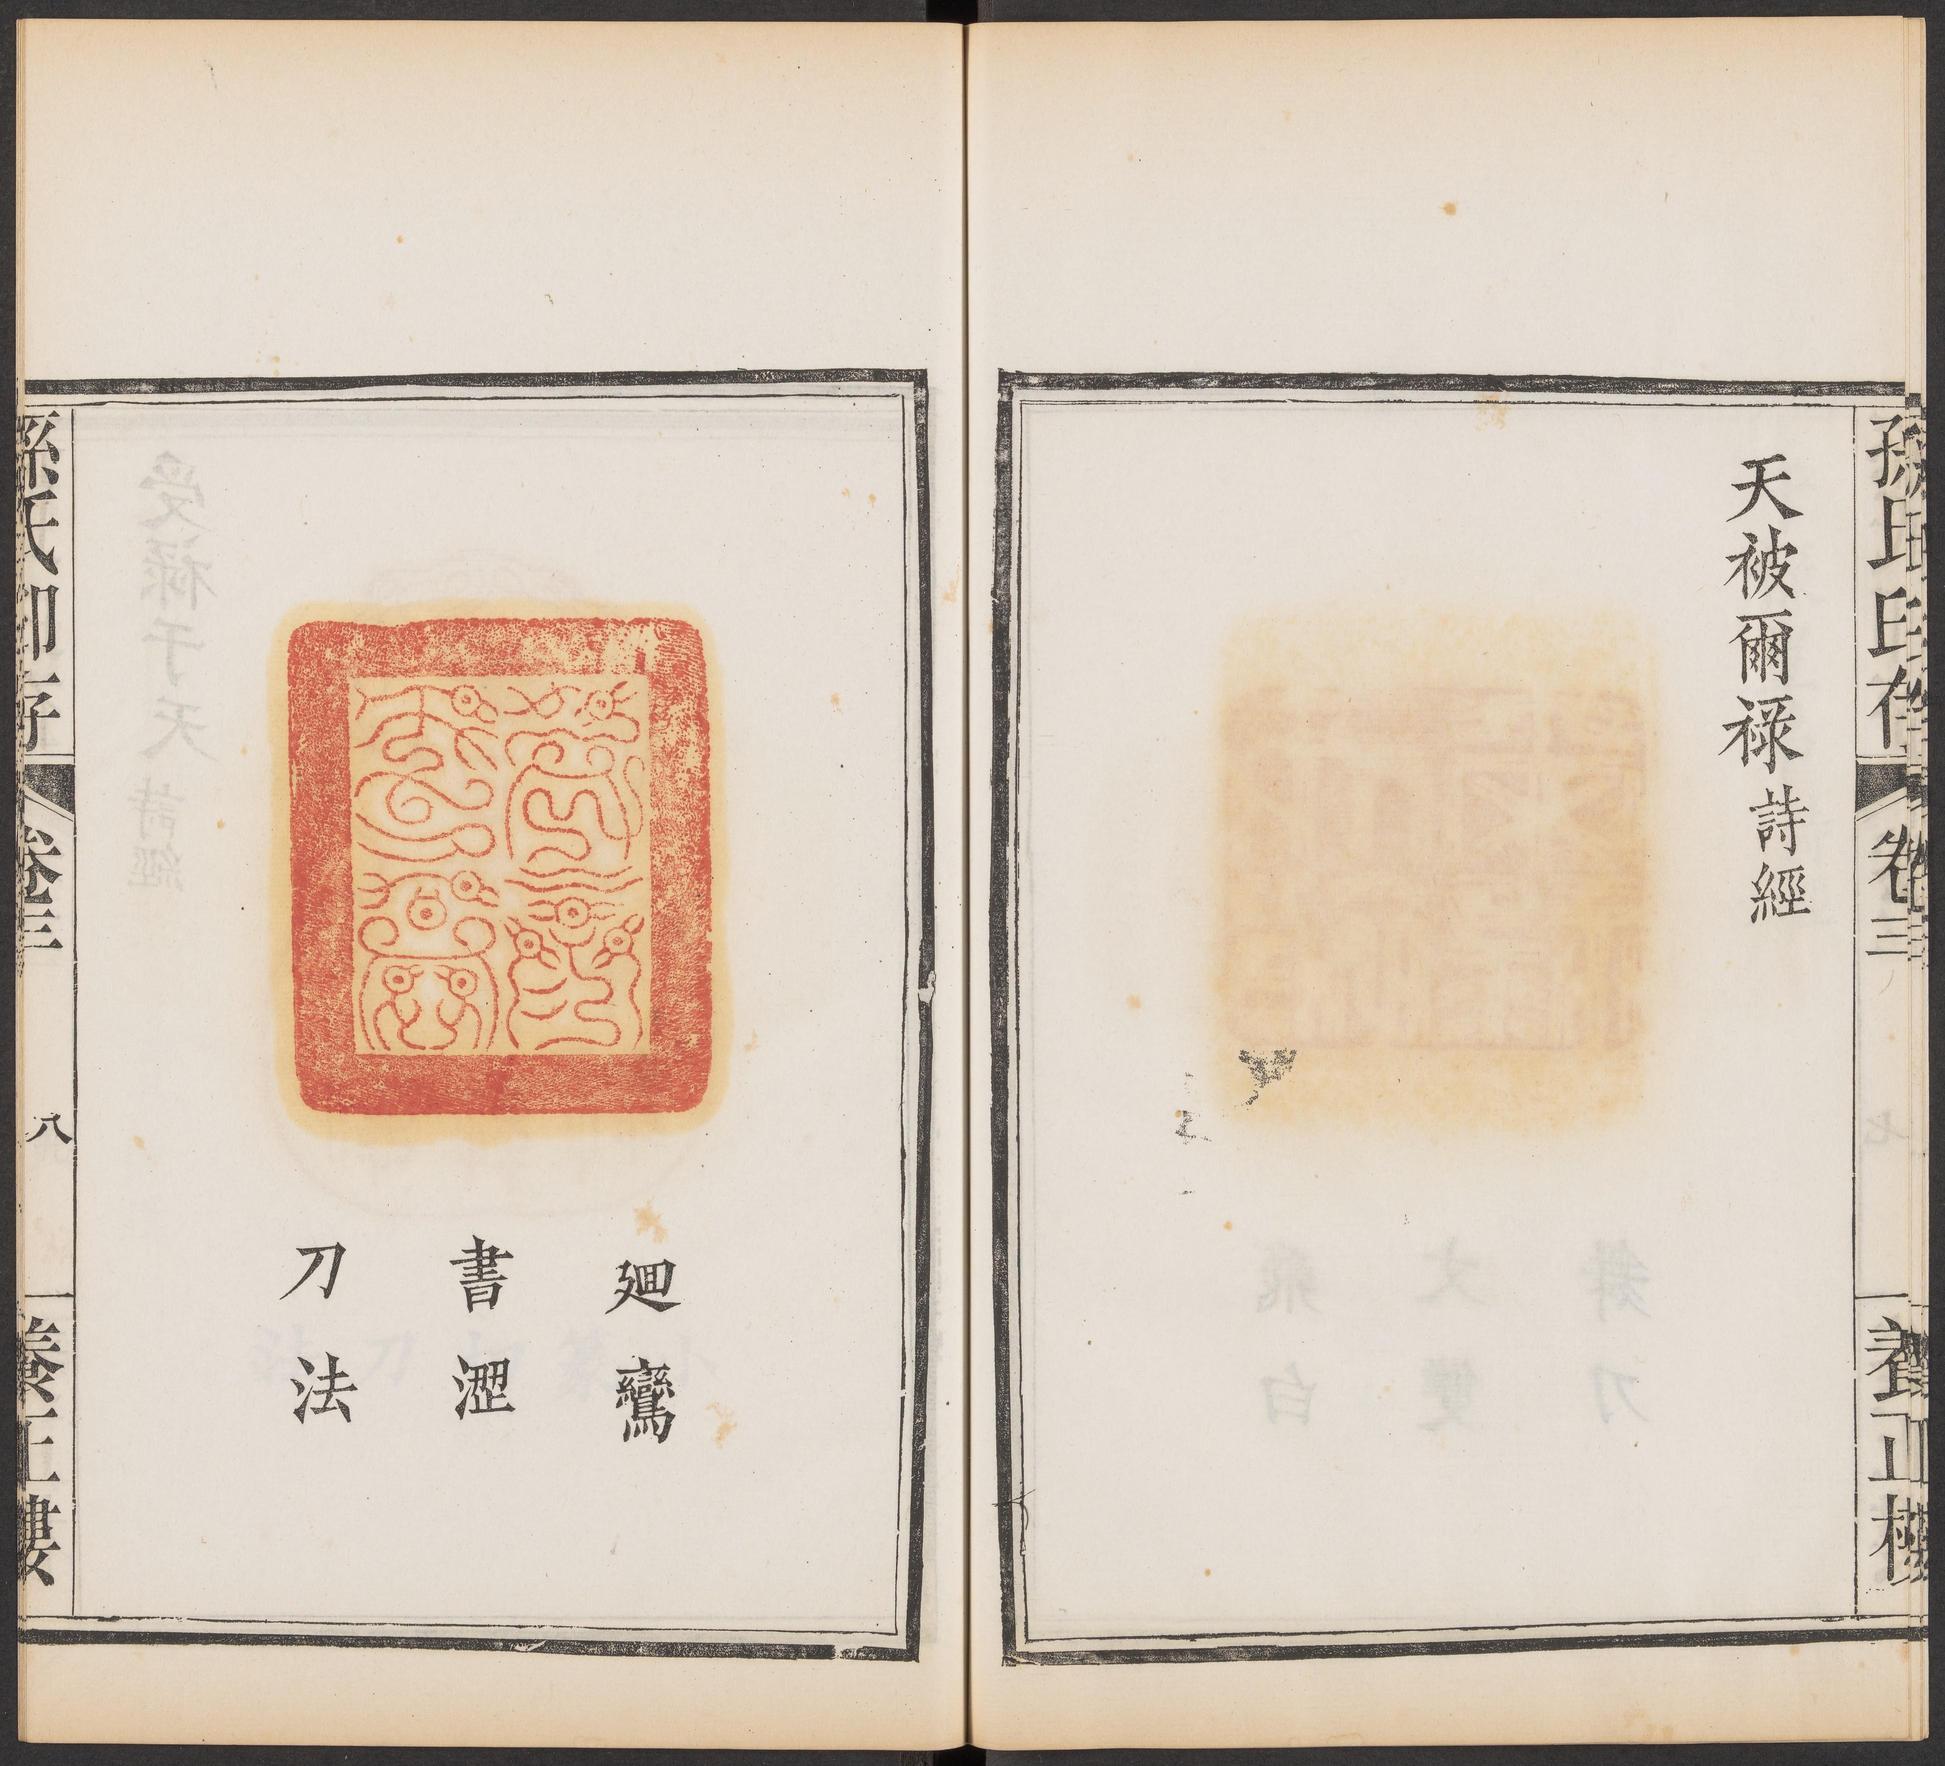 孫氏印存
卷三
養正樓
天被爾祿詩經
廻鸞
書澀
刀法
孫氏印存
卷三
八
養正樓